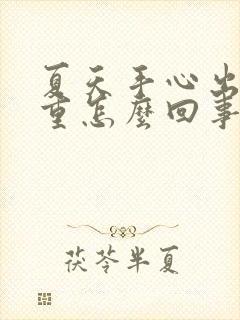 夏天手心出
重怎麼回事
茯苓半夏